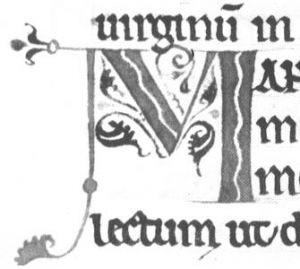 uirginū in
MAR
m
me
lectum ut d